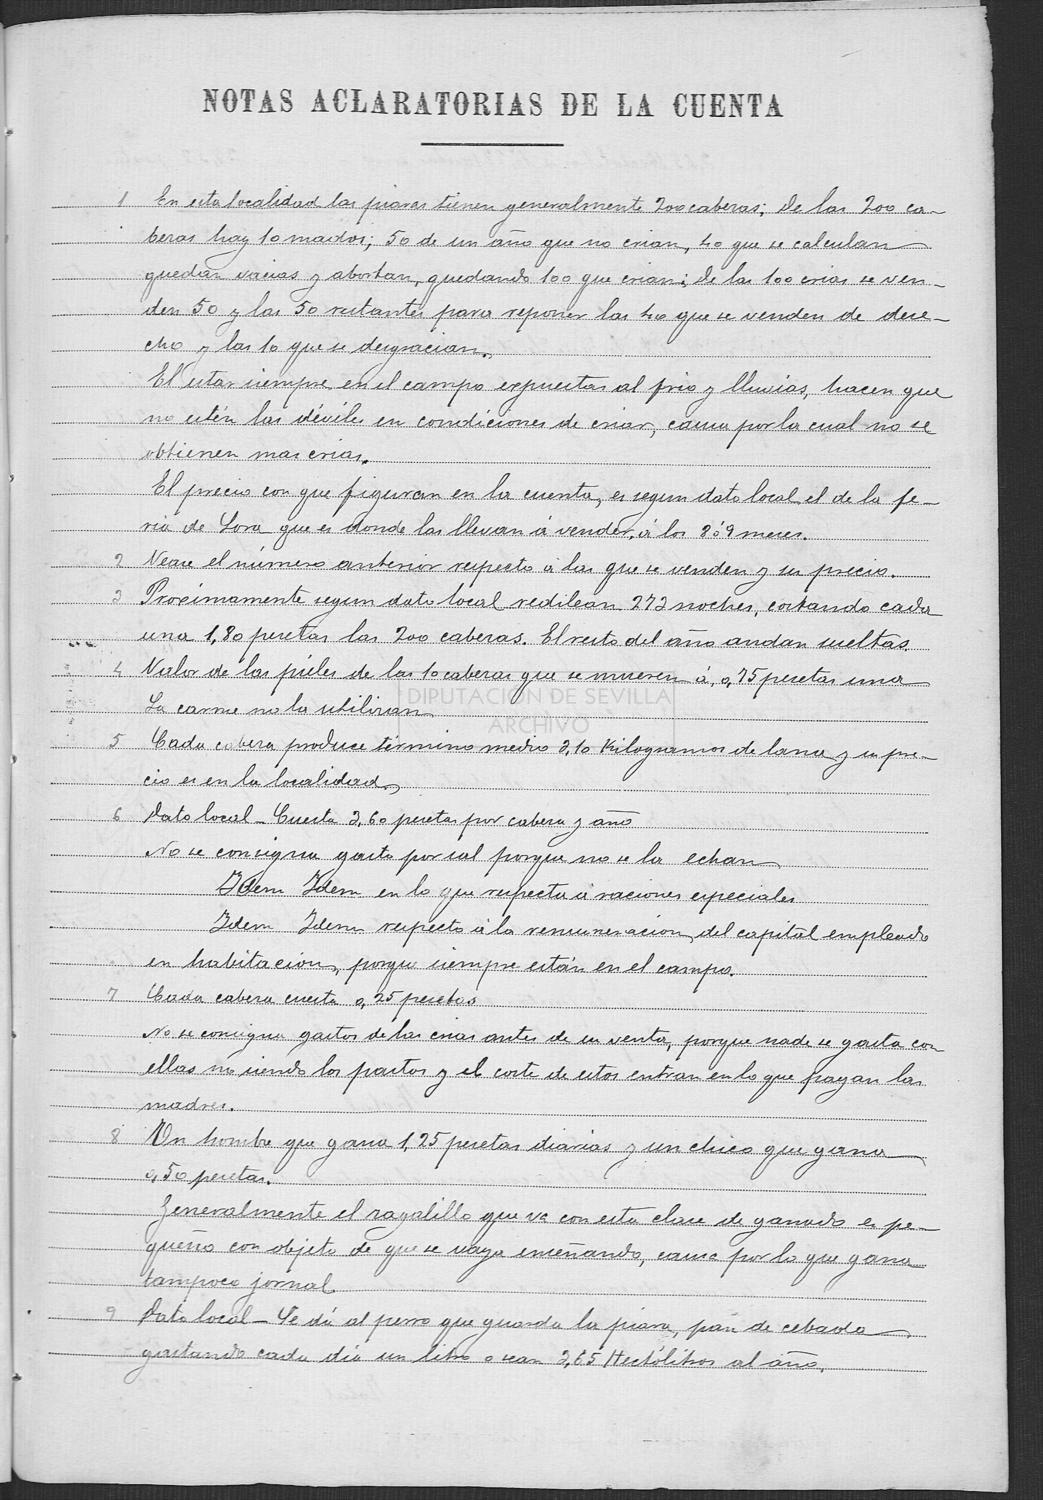 NOTAS ACLARATORIAS DE LA CUENTA
1 En esta localidad las piaras tienen generalmente 200 cabezas; de las 200 ca-
bezas hay 10 machos; 50 de un año que no crian, 40 que se calculan
quedan vacias y abortan, quedando 100 que crian; de las 100 crias se ven-
den 50 y las 50 restantes para reponer las 40 que se venden de dese-
cho y las 10 que se desgracian.
El estar siempre en el campo expuestas al frio y lluvias, hacen que
no estén las déviles en condiciones de criar, causa por la cual no se
obtienen mas crias.
El precio con que figuran en la cuenta, es segun dato local el de la fe-
ria de Lora que es donde las llevan á vender, á los 8 ó 9 meses.
2 Vease el número anterior respecto á las que se venden y su precio.
3 Proximamente segun dato local redilean 272 noches, costando cada
una 1,80 pesetas las 200 cabezas. El resto del año andan sueltas
4 Valor de las pieles de las 10 cabezas que se mueren á 0,75 pesetas una
La carne no la utilizan
DIPUTACIÓN DE SEVILLA
ARCHIVO
5 Cada cabeza produce término medio 2,10 Kilogramos de lana y su pre-
cio es en la localidad
6 Dato local - Cuesta 2,60 pesetas por cabeza y año
No se consigna gasto por sal porque no se la echan
Idem Idem en lo que respecta á raciones especiales
Idem Idem respecto á la remuneracion del capital empleado
en habitacion, porque siempre están en el campo.
7 Cada cabeza cuesta 0,25 pesetas
No se consigna gastos de las crias antes de su venta, porque nada se gasta con
ellas no siendo los pastos y el coste de estos entran en lo que pagan las
madres.
8 Un hombre que gana 1,25 pesetas diarias y un chico que gana
0,50 pesetas.
Generalmente el zagalillo que va con esta clase de ganado es pe-
queño con objeto de que se vaya enseñando, causa por lo que gana
tampoco jornal
9 Dato local - Se dá al perro que guarda la piara, pan de cebada
gastando cada dia un litro o sean 3,65 Hectólitros al año.